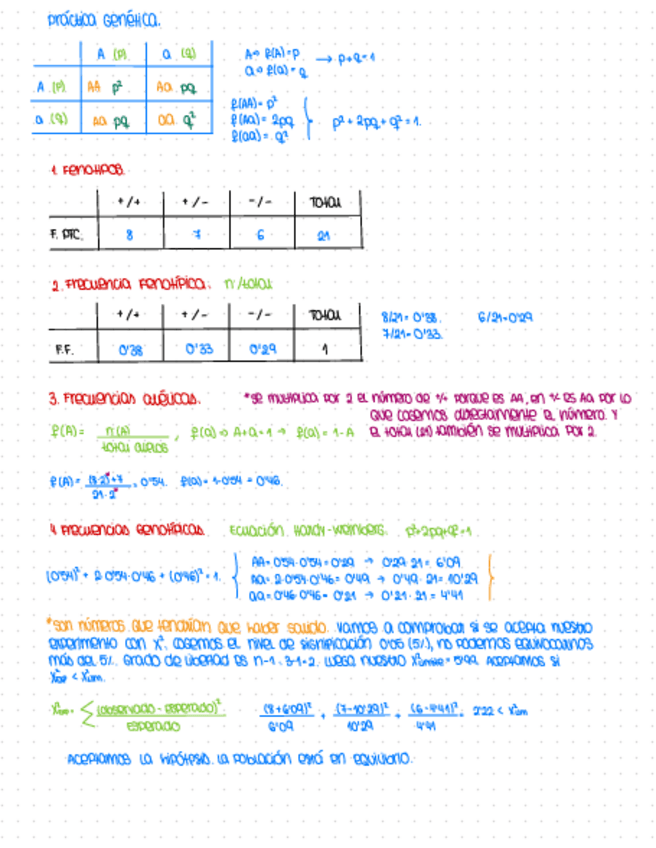 Práctica Genética.
A (p) a (q)
A (p) AA p² Aa pq
a (q) aa pq aa q²
A⇒ f(A)=p → p+q=1
a⇒ f(a)=q
f(AA)=p²
f(Aa)=2pq p²+2pq+q²=1.
f(aa)=q²
1. Fenotipos.
+/+ +/- -/- TOTAL
F. PTC. 8 7 6 21
2. Frecuencia Fenotípica. nº/total
+/+ +/- -/- TOTAL
F.F. 0'38 0'33 0'29 1
8/21=0'38. 6/21=0'29
7/21=0'33.
3. Frecuencias alélicas. *se multiplica por 2 el número de +/+ porque es AA, en +/- es Aa por lo
que cogemos directamente el número. Y
el total (21) también se multiplica por 2.
f(A)= n(A)/total alelos , f(a)⇒ A+a=1 → f(a)=1-A
f(A)= (8·2)+7/21·2 = 0'54. f(a)=1-0'54=0'46.
4. Frecuencias genotípicas. Ecuación Hardy-Weinberg. p²+2pq+q²=1
(0'54)²+2·0'54·0'46+(0'46)²=1.
AA=0'54·0'54=0'29 → 0'29·21=6'09
Aa=2·0'54·0'46=0'49 → 0'49·21=10'29
aa=0'46·0'46=0'21 → 0'21·21=4'41
*son números que tendrían que haber salido. Vamos a comprobar si se acepta nuestro
experimento con X². Cogemos el nivel de significación 0'05 (5%), no podemos equivocarnos
más del 5%. Grado de libertad es n-1. 3-1=2. Luego nuestro = 5'99. Aceptamos si
X²exp < X²lim.
= Σ (observado - esperado)²/esperado (8+6'09)²/6'09 + (7-10'29)²/10'29 + (6-4'41)²/4'41 = 2'22 < X²lim
Aceptamos la hipótesis. La población está en equilibrio.